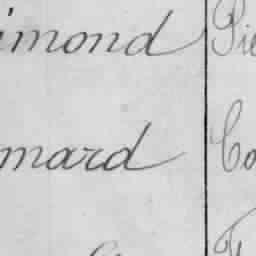 imond Pie
mard Co